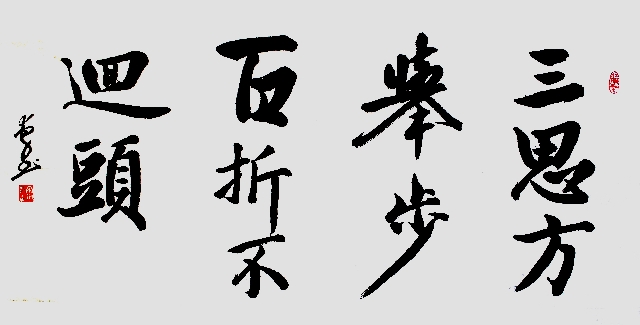 三思方
舉步
百折不
迴頭